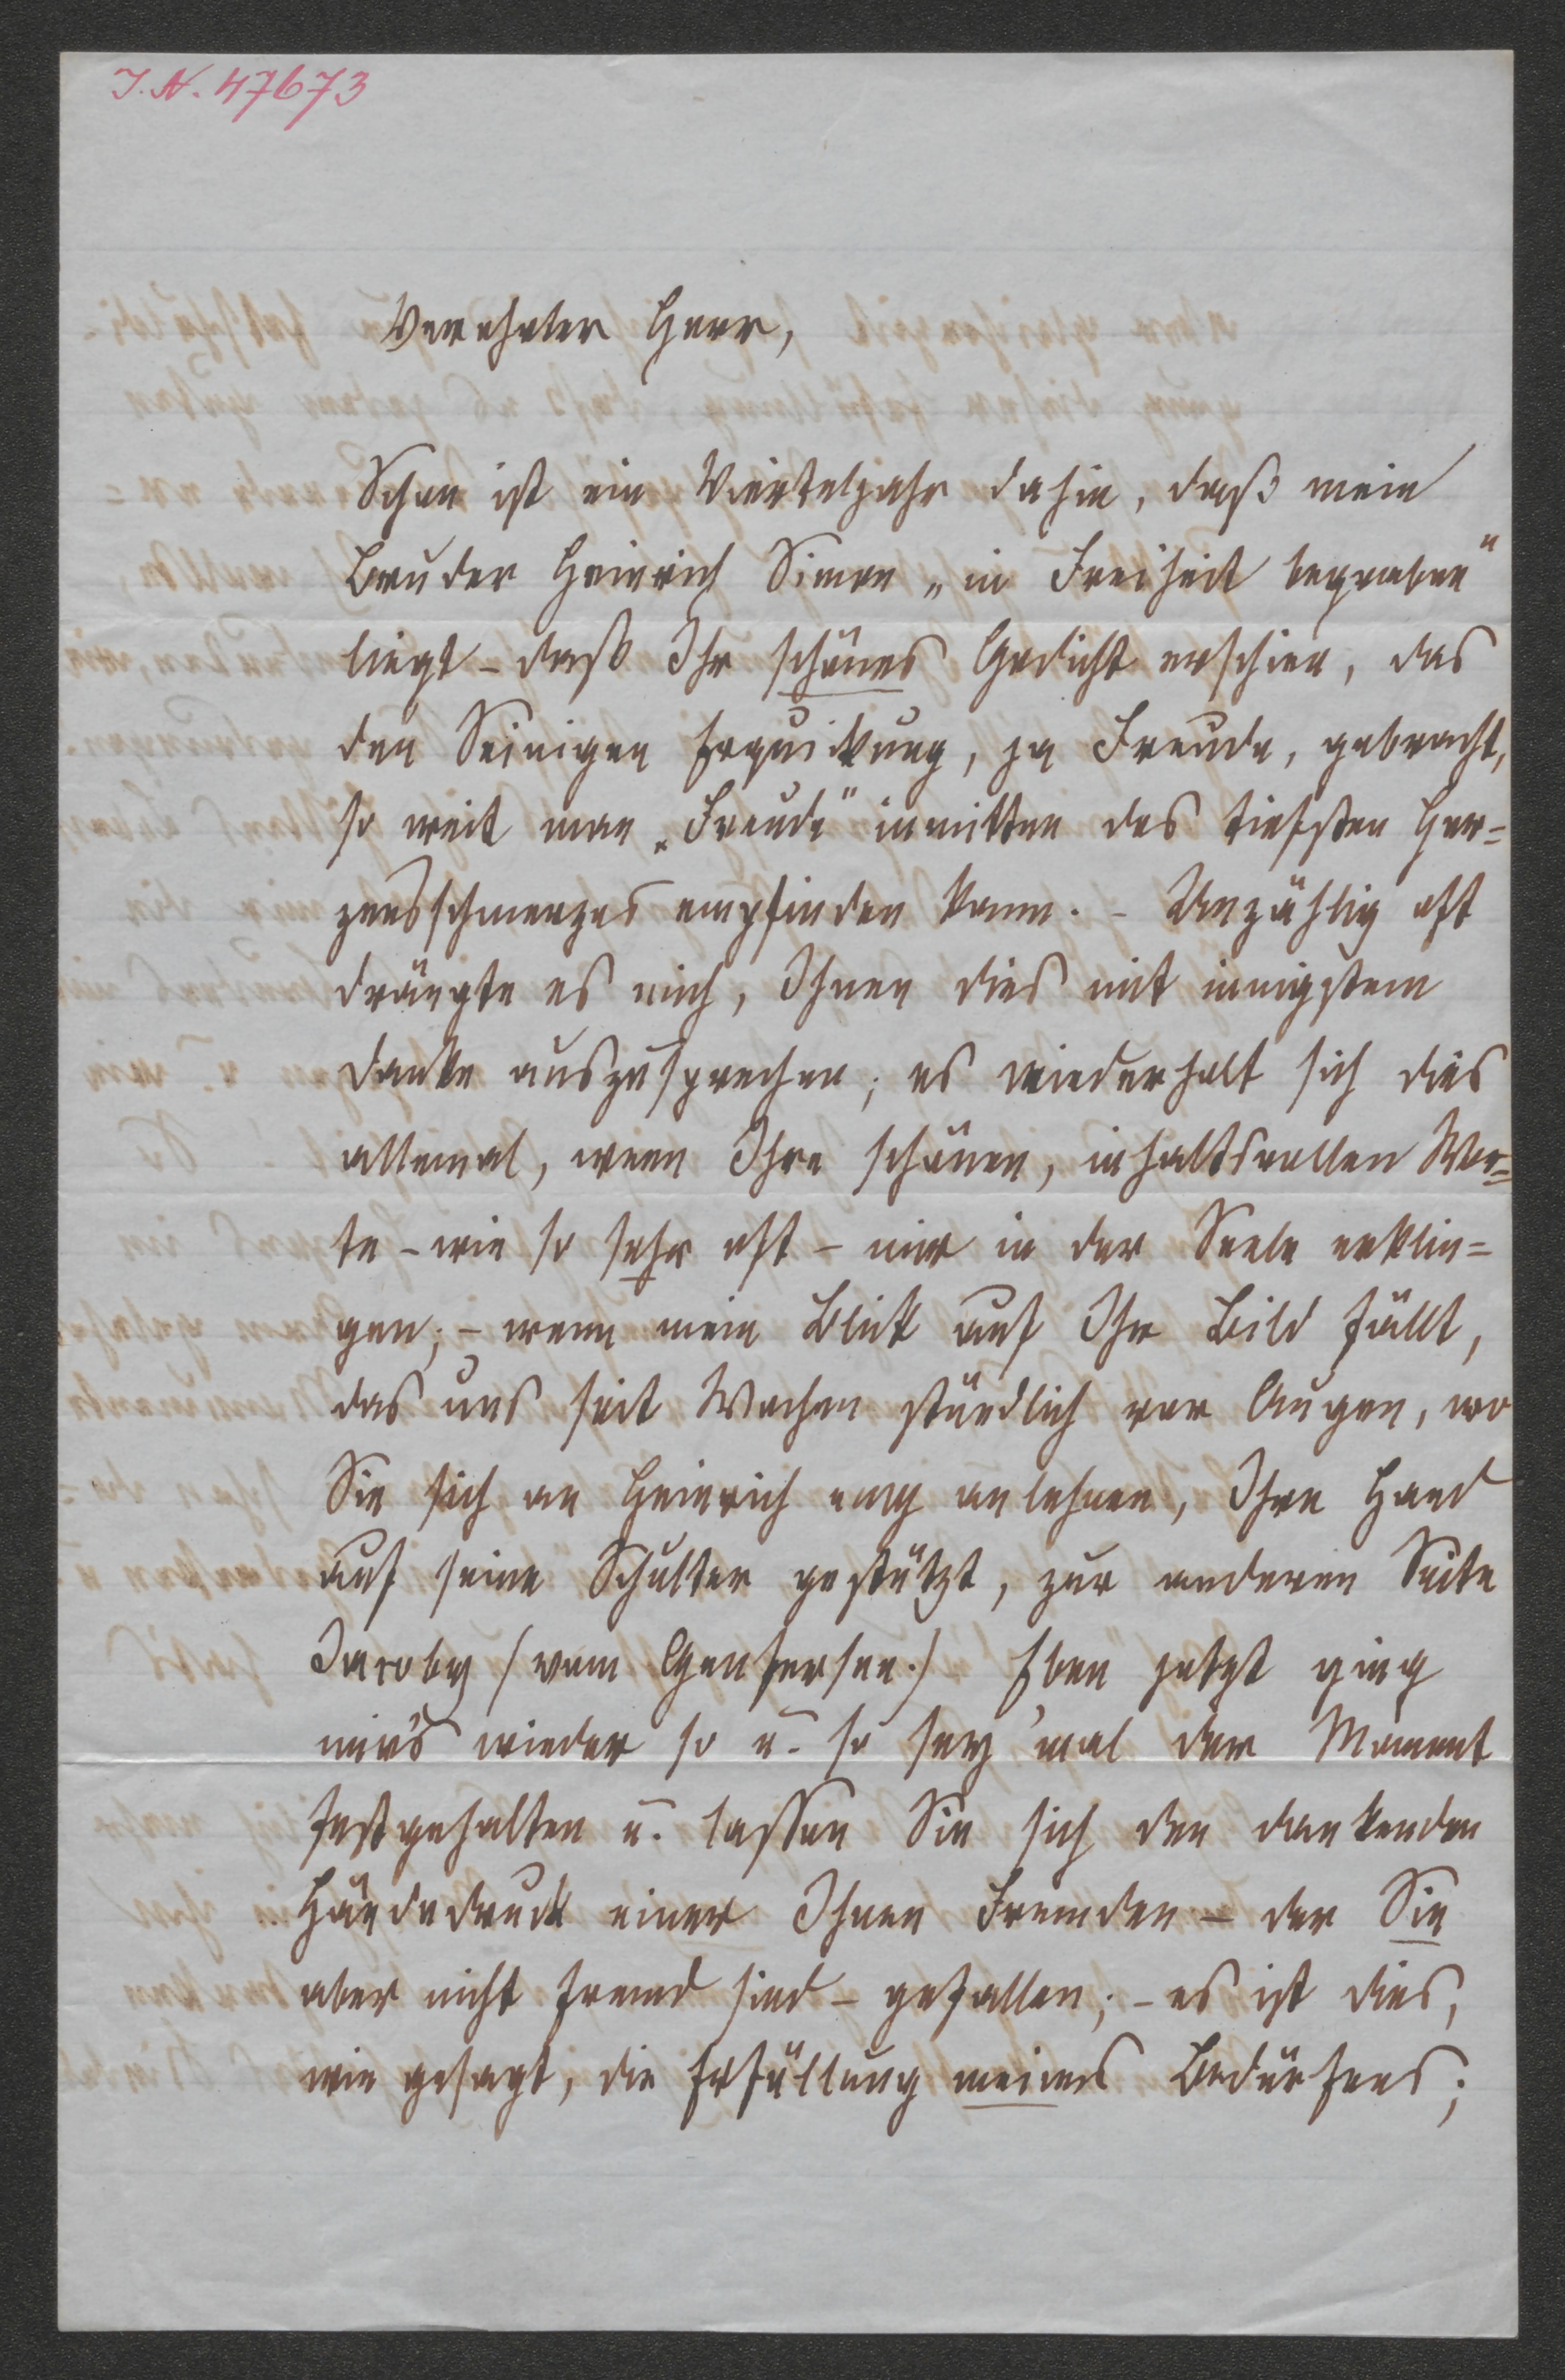 I. N. 47673
Verehrter Herr,
Schon ist ein Vierteljahr dahin, daß mein
Bruder Heinrich Simon „in Freiheit begraben“
liegt – daß Ihr schönes Gedicht erschien, das
den Seinigen Erquickung, ja Freude, gebracht,
so weit man „Freude“ inmitten des tiefsten Her=
zensschmerzes empfinden kann. – Unzählig oft
drängte es mich, Ihnen dies mit innigstem
Danke auszusprechen; es wiederholt sich dies
allemal, wenn Ihre schönen, inhaltsvollen Wor=
te – wie so sehr oft – mir in der Seele erklin=
gen; – wenn mein Blick auf Ihr Bild fällt,
das uns seit Wochen stündlich vor Augen, wo
Sie sich an Heinrich eng anlehnen, Ihre Hand
auf seine Schulter gestützt, zur anderen Seite
Jacoby (vom Genfersee.) Eben jetzt ging
mir's wieder so u. so sey 'mal der Moment
festgehalten u. lassen Sie sich den dankenden
Händedruck einer Ihnen Fremden – der Sie
aber nicht fremd sind – gefallen; – es ist dies,
wie gesagt, die Erfüllung meines Bedürfens;